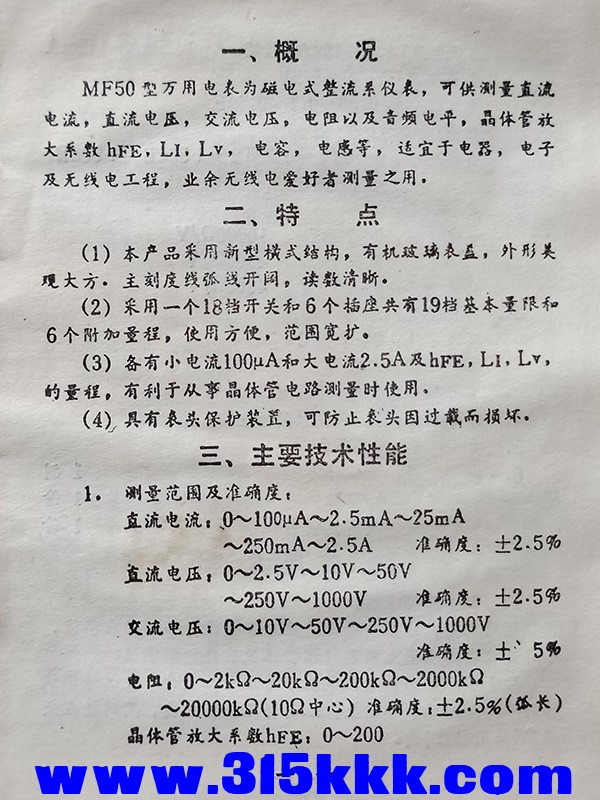 一、概 况
MF50型万用电表为磁电式整流系仪表，可供测量直流
电流，直流电压，交流电压，电阻以及音频电平，晶体管放
大系数hFE，LI，Lv，电容，电感等，适宜于电器，电子
及无线电工程，业余无线电爱好者测量之用。
二、特 点
(1) 本产品采用新型横式结构，有机玻璃表盖，外形美
观大方。主刻度线弧线开阔，读数清晰。
(2) 采用一个18档开关和6个插座共有19档基本量限和
6个附加量程，使用方便，范围宽扩。
(3) 备有小电流100μA和大电流2.5A及hFE，LI，Lv，
的量程，有利于从事晶体管电路测量时使用。
(4) 具有表头保护装置，可防止表头因过载而损坏。
三、主要技术性能
1。 测量范围及准确度：
直流电流：0～100μA～2.5mA～25mA
～250mA～2.5A 准确度：±2.5%
直流电压：0～2.5V～10V～50V
～250V～1000V 准确度：±2.5%
交流电压：0～10V～50V～250V～1000V
准确度：± 5%
电阻：0～2kΩ～20kΩ～200kΩ～2000kΩ
～20000kΩ(10Ω中心) 准确度：±2.5%(弧长)
晶体管放大系数hFE：0～200
www.315kkk.com